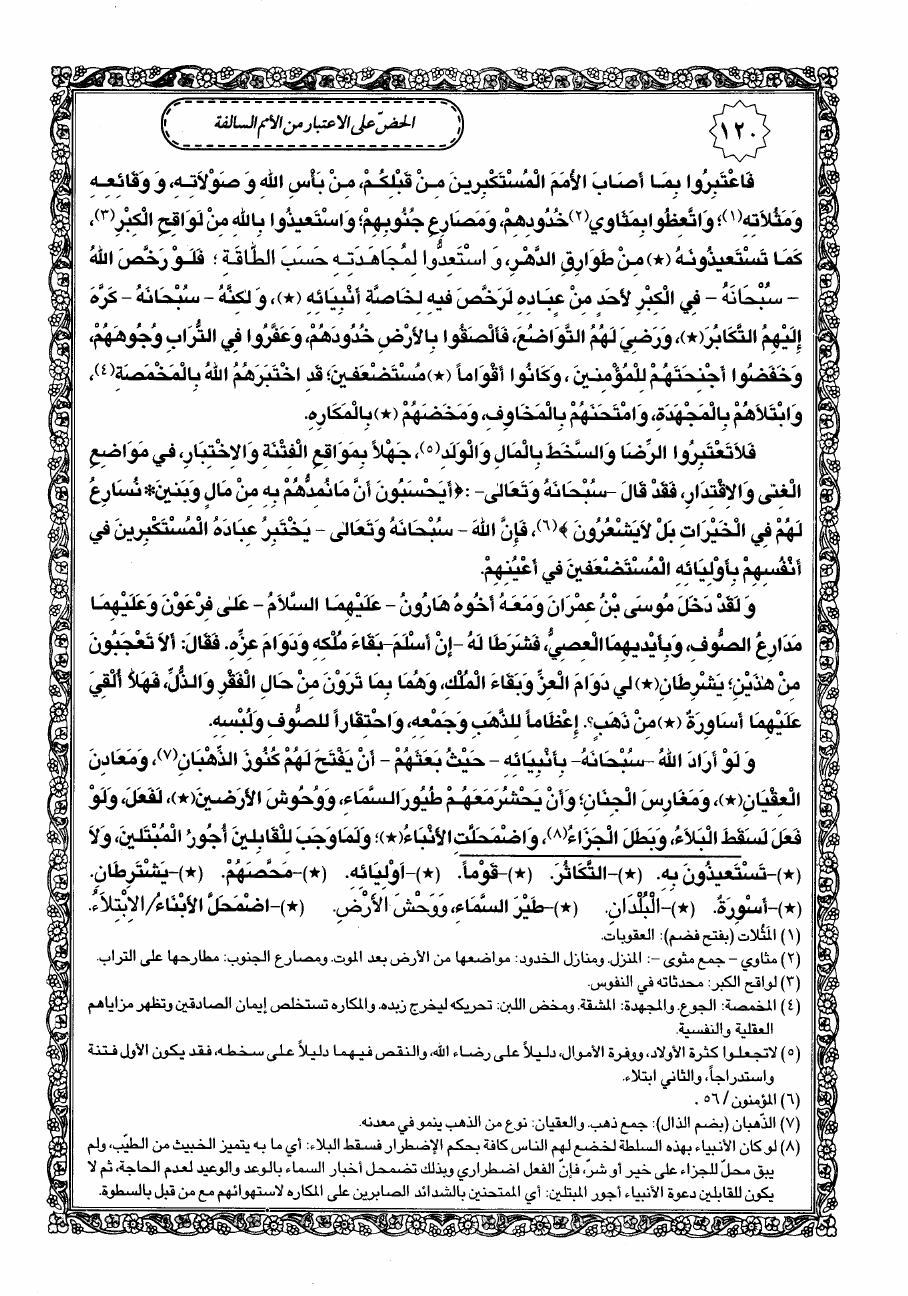 ١٢٠
الحضّ على الاعتبار من الأمم السالفة
فَاعْتَبِرُوا بِمَـا أَصَابَ الأُمَمَ الْمُسْتَكْبِرِينَ مِـنْ قَبْلِكُـمْ، مِـنْ بَـأْسِ اللهِ وَ صَوْلَاتِـهِ، وَ وَقَائِعِـهِ
وَ مَثُلَاتِهِ(١)؛ وَاتَّعِظُوا بِمَثَاوِي(٢)خُدُودِهِمْ، وَمَصَارِعِ جُنُوبِهِمْ؛ وَاسْتَعِيذُوا بِاللهِ مِنْ لَوَاقِحِ الْكِبْرِ(٣)،
كَمَـا تَسْتَعِيذُونَـهُ (★) مِـنْ طَوَارِقِ الدَّهْـرِ، وَ اسْتَعِدُّوا لِمُجَاهَدَتِـهِ حَسَبَ الطَّاقَـةِ ؛ فَلَـوْ رَخَّصَ اللهُ
– سُبْحَانَهُ – فِي الْكِبْرِ لأَحَدٍ مِنْ عِبَادِهِ لَرَخَّصَ فِيهِ لِخَاصَّةِ أَنْبِيَائِهِ (★)، وَ لكِنَّهُ – سُبْحَانَهُ – كَرَّهَ
إِلَيْهِمُ التَّكَابُرَ(★)، وَرَضِيَ لَهُمُ التَّوَاضُعَ، فَأَلْصَقُوا بِالأَرْضِ خُدُودَهُمْ، وَعَفَّرُوا فِي التُّرَابِ وُجُوهَهُمْ،
وَخَفَضُوا أَجْنِحَتَهُـمْ لِلْمُؤْمِنِـينَ ، وَكَانُوا أَقْوَامـاً (★) مُسْتَضْعَفِـينَ؛ قَدِ اخْتَبَرَهُـمُ اللهُ بِالْمَخْمَصَةِ(٤)،
وَابْتَلَاهُمْ بِالْمَجْهَدَةِ، وَامْتَحَنَهُمْ بِالْمَخَاوِفِ، وَمَخَضَهُمْ (★)بِالْمَكَارِهِ.
فَلَاتَعْتَبِرُوا الرِّضَا وَالسَّخَطَ بِالْمَالِ وَالْوَلَدِ(٥)، جَهْلاً بِمَوَاقِعِ الْفِتْنَةِ وَالِاخْتِبَارِ، فِي مَوَاضِعِ
الْغِنى وَالِاقْتِدَارِ، فَقَدْ قَالَ –سُبْحَانَهُ وَتَعَالَى– :﴿أَيَحْسَبُونَ أَنَّ مَانُمِدُّهُمْ بِهِ مِنْ مَالٍ وَبَنِينَ*نُسَارِعُ
لَهُمْ فِي الْخَيْرَاتِ بَل لَايَشْعُرُونَ ﴾(٦)، فَإِنَّ اللهَ – سُبْحَانَهُ وَتَعَالى – يَخْتَبِرُ عِبَادَهُ الْمُسْتَكْبِرِينَ فِي
أَنْفُسِهِمْ بِأَوْلِيَائِهِ الْمُسْتَضْعَفِينَ فِي أَعْيُنِهِمْ.
وَ لَقَدْ دَخَلَ مُوسَى بْنُ عِمْرَانَ وَمَعَهُ أَخُوهُ هَارُونُ – عَلَيْهِمَا السَّلَامُ – عَلى فِرْعَوْنَ وَعَلَيْهِمَا
مَدَارِعُ الصُّوفِ، وَبِأَيْدِيهِمَا الْعِصِيُّ، فَشَرَطَا لَهُ –إِنْ أَسْلَمَ–بَقَاءَ مُلْكِهِ وَدَوَامَ عِزِّهِ. فَقَالَ: أَلَا تَعْجَبُونَ
مِنْ هذَيْنِ؛ يَشْرِطَانِ(★)لِي دَوَامَ الْعِزِّ وَبَقَاءَ الْمُلْكِ، وَهُمَا بِمَا تَرَوْنَ مِنْ حَالِ الْفَقْرِ وَالذُّلِّ، فَهَلَّا أُلْقِيَ
عَلَيْهِمَا أَسَاوِرَةٌ (★)مِنْ ذَهَبٍ؟. إِعْظَاماً لِلذَّهَبِ وَجَمْعِهِ، وَاحْتِقَاراً لِلصُّوفِ وَلُبْسِهِ.
وَ لَوْ أَرَادَ اللهُ –سُبْحَانَهُ– بِأَنْبِيَائِهِ –حَيْثُ بَعَثَهُمْ – أَنْ يَفْتَحَ لَهُمْ كُنُوزَ الذِّهْبَانِ(٧)، وَمَعَادِنَ
الْعِقْيَانِ(★)، وَمَغَارِسَ الْجِنَانِ؛ وَأَنْ يَحْشُرَ مَعَهُـمْ طُيُورَ السَّمَاءِ، وَوُحُوشَ الأَرَضِينَ(★)، لَفَعَلَ، وَلَوْ
فَعَلَ لَسَقَطَ الْبَلَاءُ، وَبَطَلَ الْجَزَاءُ(٨)، وَاضْمَحَلَّتِ الأَنْبَاءُ(★)؛ وَلَمَا وَجَبَ لِلْقَابِلِينَ أُجُورُ الْمُبْتَلِينَ، وَلَا
(★)–تَسْتَعِيذُونَ بِهِ. (★)–التَّكَاثُرَ. (★)–قَوْماً. (★)–أَوْلِيَائِهِ. (★)–مَحَّصَهُمْ. (★)–يَشْتَرِطَانِ.
(★)–أَسْوِرَةٌ. (★)–الْبُلْدَانِ. (★)–طَيْرَ السَّمَاءِ، وَوَحْشَ الأَرْضِ. (★)–اضْمَحَلَّ الأَنْبَاءُ/الاِبْتِلَاءُ.
(١) المَثُلات (بفتح فضم): العقوبات.
(٢) مثاوي – جمع مثوى –: المنزل. ومنازل الخدود: مواضعها من الأرض بعد الموت. ومصارع الجنوب: مطارحها على التراب.
(٣) لواقح الكبر: محدثاته في النفوس.
(٤) المخمصة: الجوع. والمجهدة: المشقة. ومخض اللبن: تحريكه ليخرج زبده. والمكاره تستخلص إيمان الصادقين وتظهر مزاياهم
العقلية والنفسية.
(٥) لاتجعلوا كثرة الأولاد، ووفرة الأموال، دليلاً على رضاء الله، والنقص فيهما دليلاً على سخطه، فقد يكون الأول فتنة
واستدراجاً، والثاني ابتلاء.
(٦) المؤمنون / ٥٦ .
(٧) الذُهبان (بضم الذال): جمع ذهب. والعقيان: نوع من الذهب ينمو في معدنه.
(٨) لو كان الأنبياء بهذه السلطة لخضع لهم الناس كافة بحكم الإضطرار فسقط البلاء: أي ما به يتميز الخبيث من الطيّب، ولم
يبق محلّ للجزاء على خير أو شرّ، فإنّ الفعل اضطراري وبذلك تضمحل أخبار السماء بالوعد والوعيد لعدم الحاجة، ثم لا
يكون للقابلين دعوة الأنبياء أجور المبتلين: أي الممتحنين بالشدائد الصابرين على المكاره لاستهوائهم مع من قبل بالسطوة.